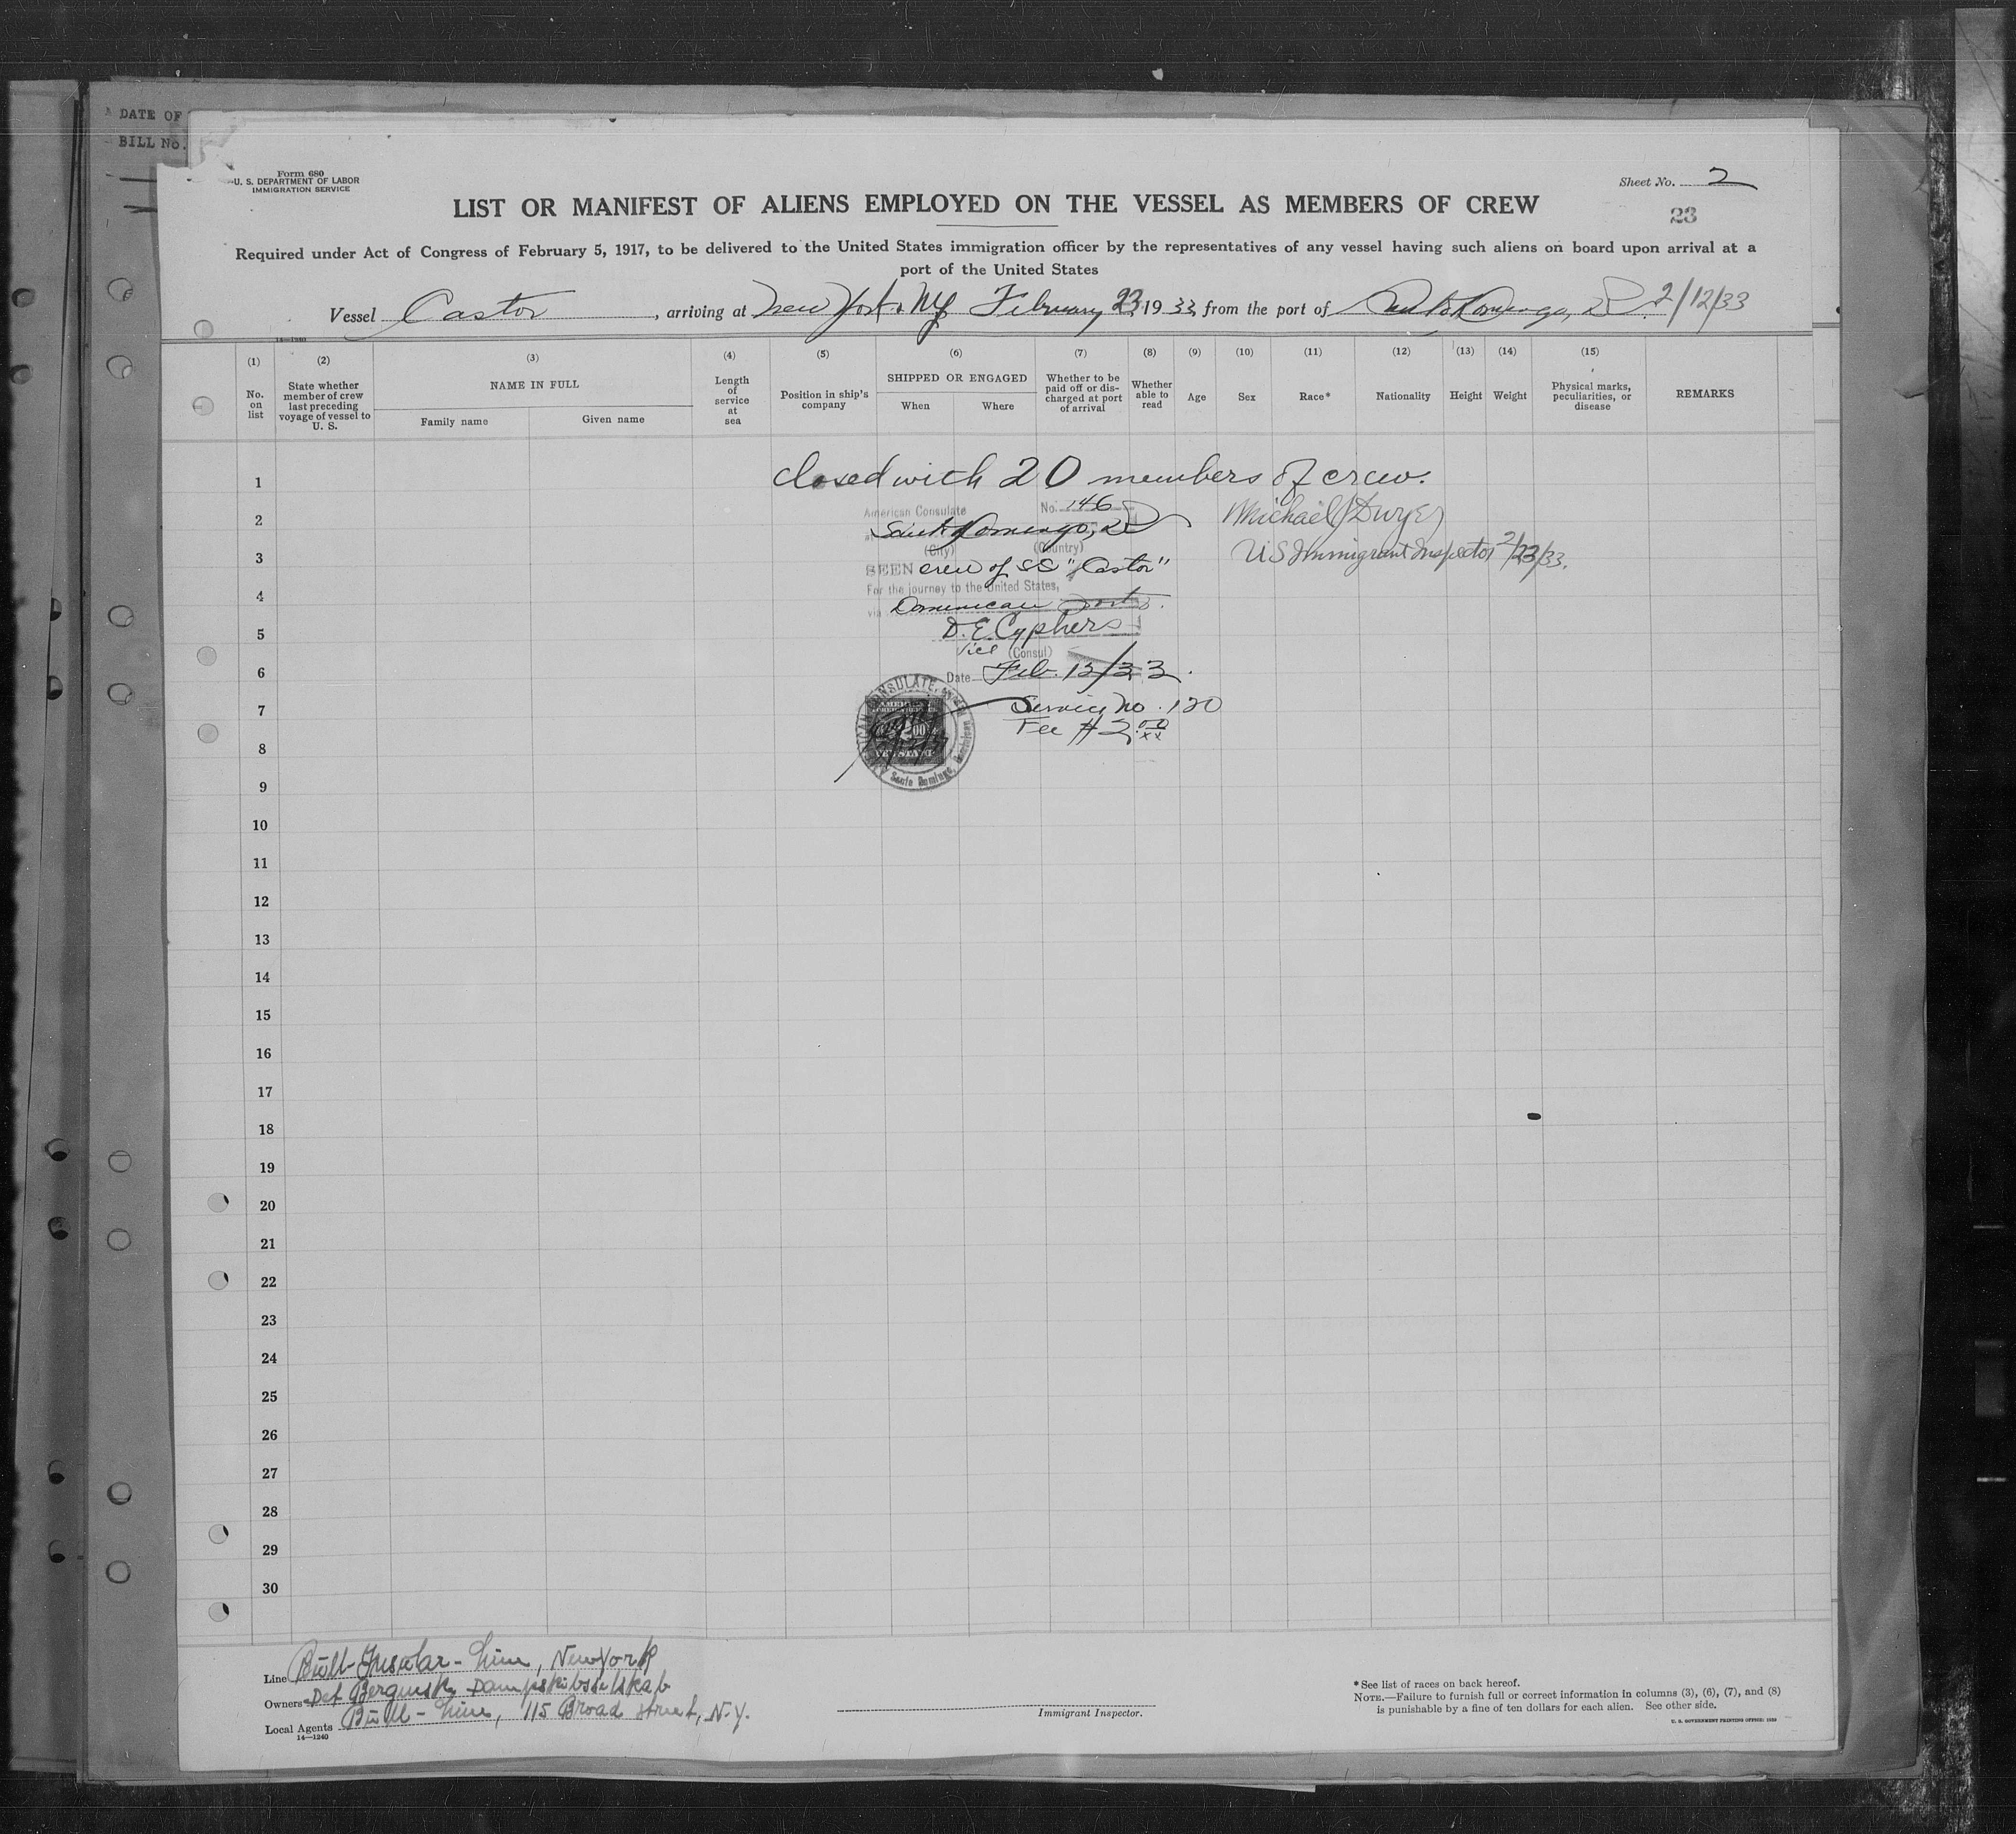 DATE OF
BILL No.
Form 680
U. S. DEPARTMENT OF LABOR
IMMIGRATION SERVICE
Sheet No. 2
LIST OR MANIFEST OF ALIENS EMPLOYED ON THE VESSEL AS MEMBERS OF CREW
23
Required under Act of Congress of February 5, 1917, to be delivered to the United States immigration officer by the representatives of any vessel having such aliens on board upon arrival at a
port of the United States
Vessel Castor, arriving at New York N.Y. February 23 1933, from the port of Santo Domingo, D.R. 2/12/33
14—1240
(1) (2) (3) (4) (5) (6) (7) (8) (9) (10) (11) (12) (13) (14) (15)
No. on list
State whether member of crew last preceding voyage of vessel to U. S.
NAME IN FULL
Family name
Given name
Length of service at sea
Position in ship's company
SHIPPED OR ENGAGED
When
Where
Whether to be paid off or discharged at port of arrival
Whether able to read
Age
Sex
Race*
Nationality
Height
Weight
Physical marks, peculiarities, or disease
REMARKS
1
Closed with 20 members of crew.
2
American Consulate No. 146
Santo Domingo, D.R.
Michael J Dwyer
(City) (Country)
US Immigrant Inspector 2/23/33.
3
SEEN crew of SS "Castor"
For the journey to the United States,
4
via Dominican ports.
5
D. E. Cyphers
Vice (Consul)
6
Date Feb. 13/33.
7
Service No. 120
Fee $2.00
xx
AMERICAN CONSULATE
Santo Domingo, Dominican
8
9
10
11
12
13
14
15
16
17
18
19
20
21
22
23
24
25
26
27
28
29
30
Line Bull-Insular-Line, New York
Owners Det Bergenske Dampskibsselskab
Local Agents Bull-Line, 115 Broad street, N.Y.
14—1240
Immigrant Inspector.
* See list of races on back hereof.
NOTE.—Failure to furnish full or correct information in columns (3), (6), (7), and (8)
is punishable by a fine of ten dollars for each alien. See other side.